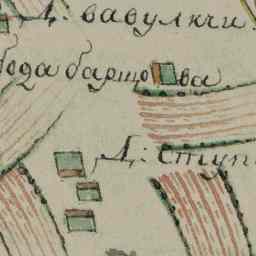 Д: вавулкчи.
бода барщова
Д: ступ